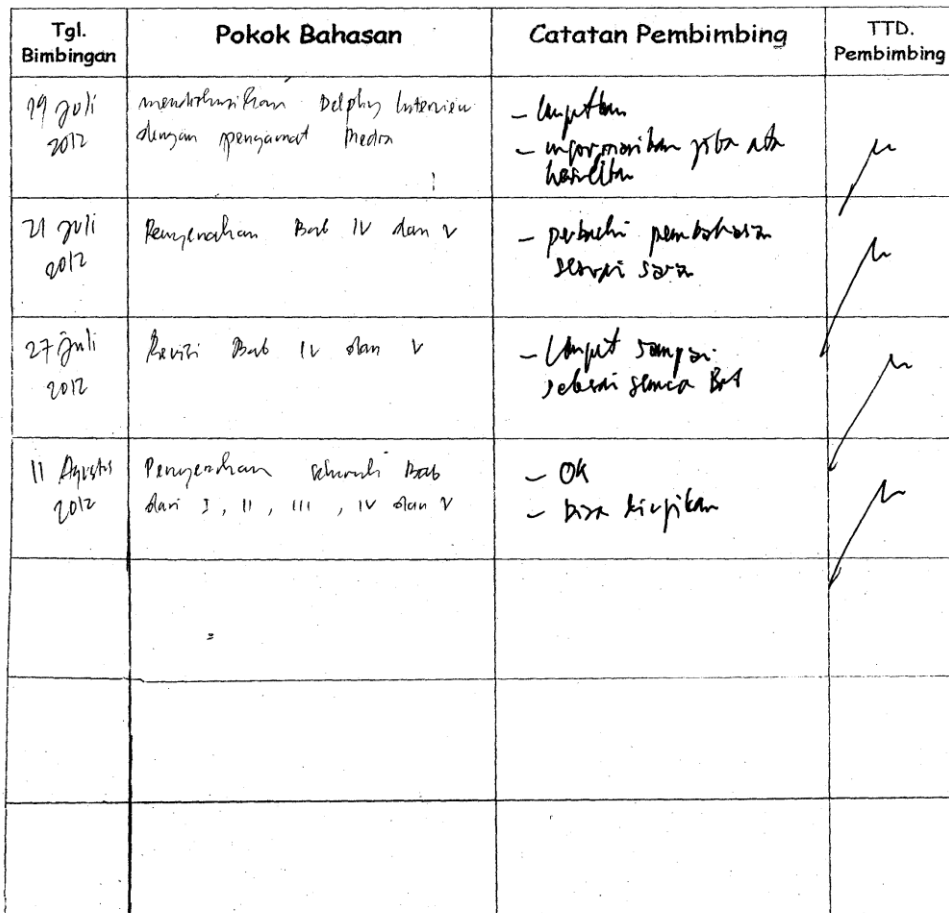 Tgl.
Bimbingan
Pokok Bahasan
Catatan Pembimbing
TTD.
Pembimbing
19 Juli
2012
Delphy Interview
dengan pengamat Media
- Lanjutkan
- informasikan jika ada
21 Juli
2012
Penyerahan Bab IV dan V
- perbaiki pembahasan
sesuai saran
27 Juli
2012
Revisi Bab IV dan V
- Lanjut sampai
semua Bab
11 Agustus
2012
Penyerahan seluruh Bab
dari I, II, III, IV dan V
- OK
- bisa